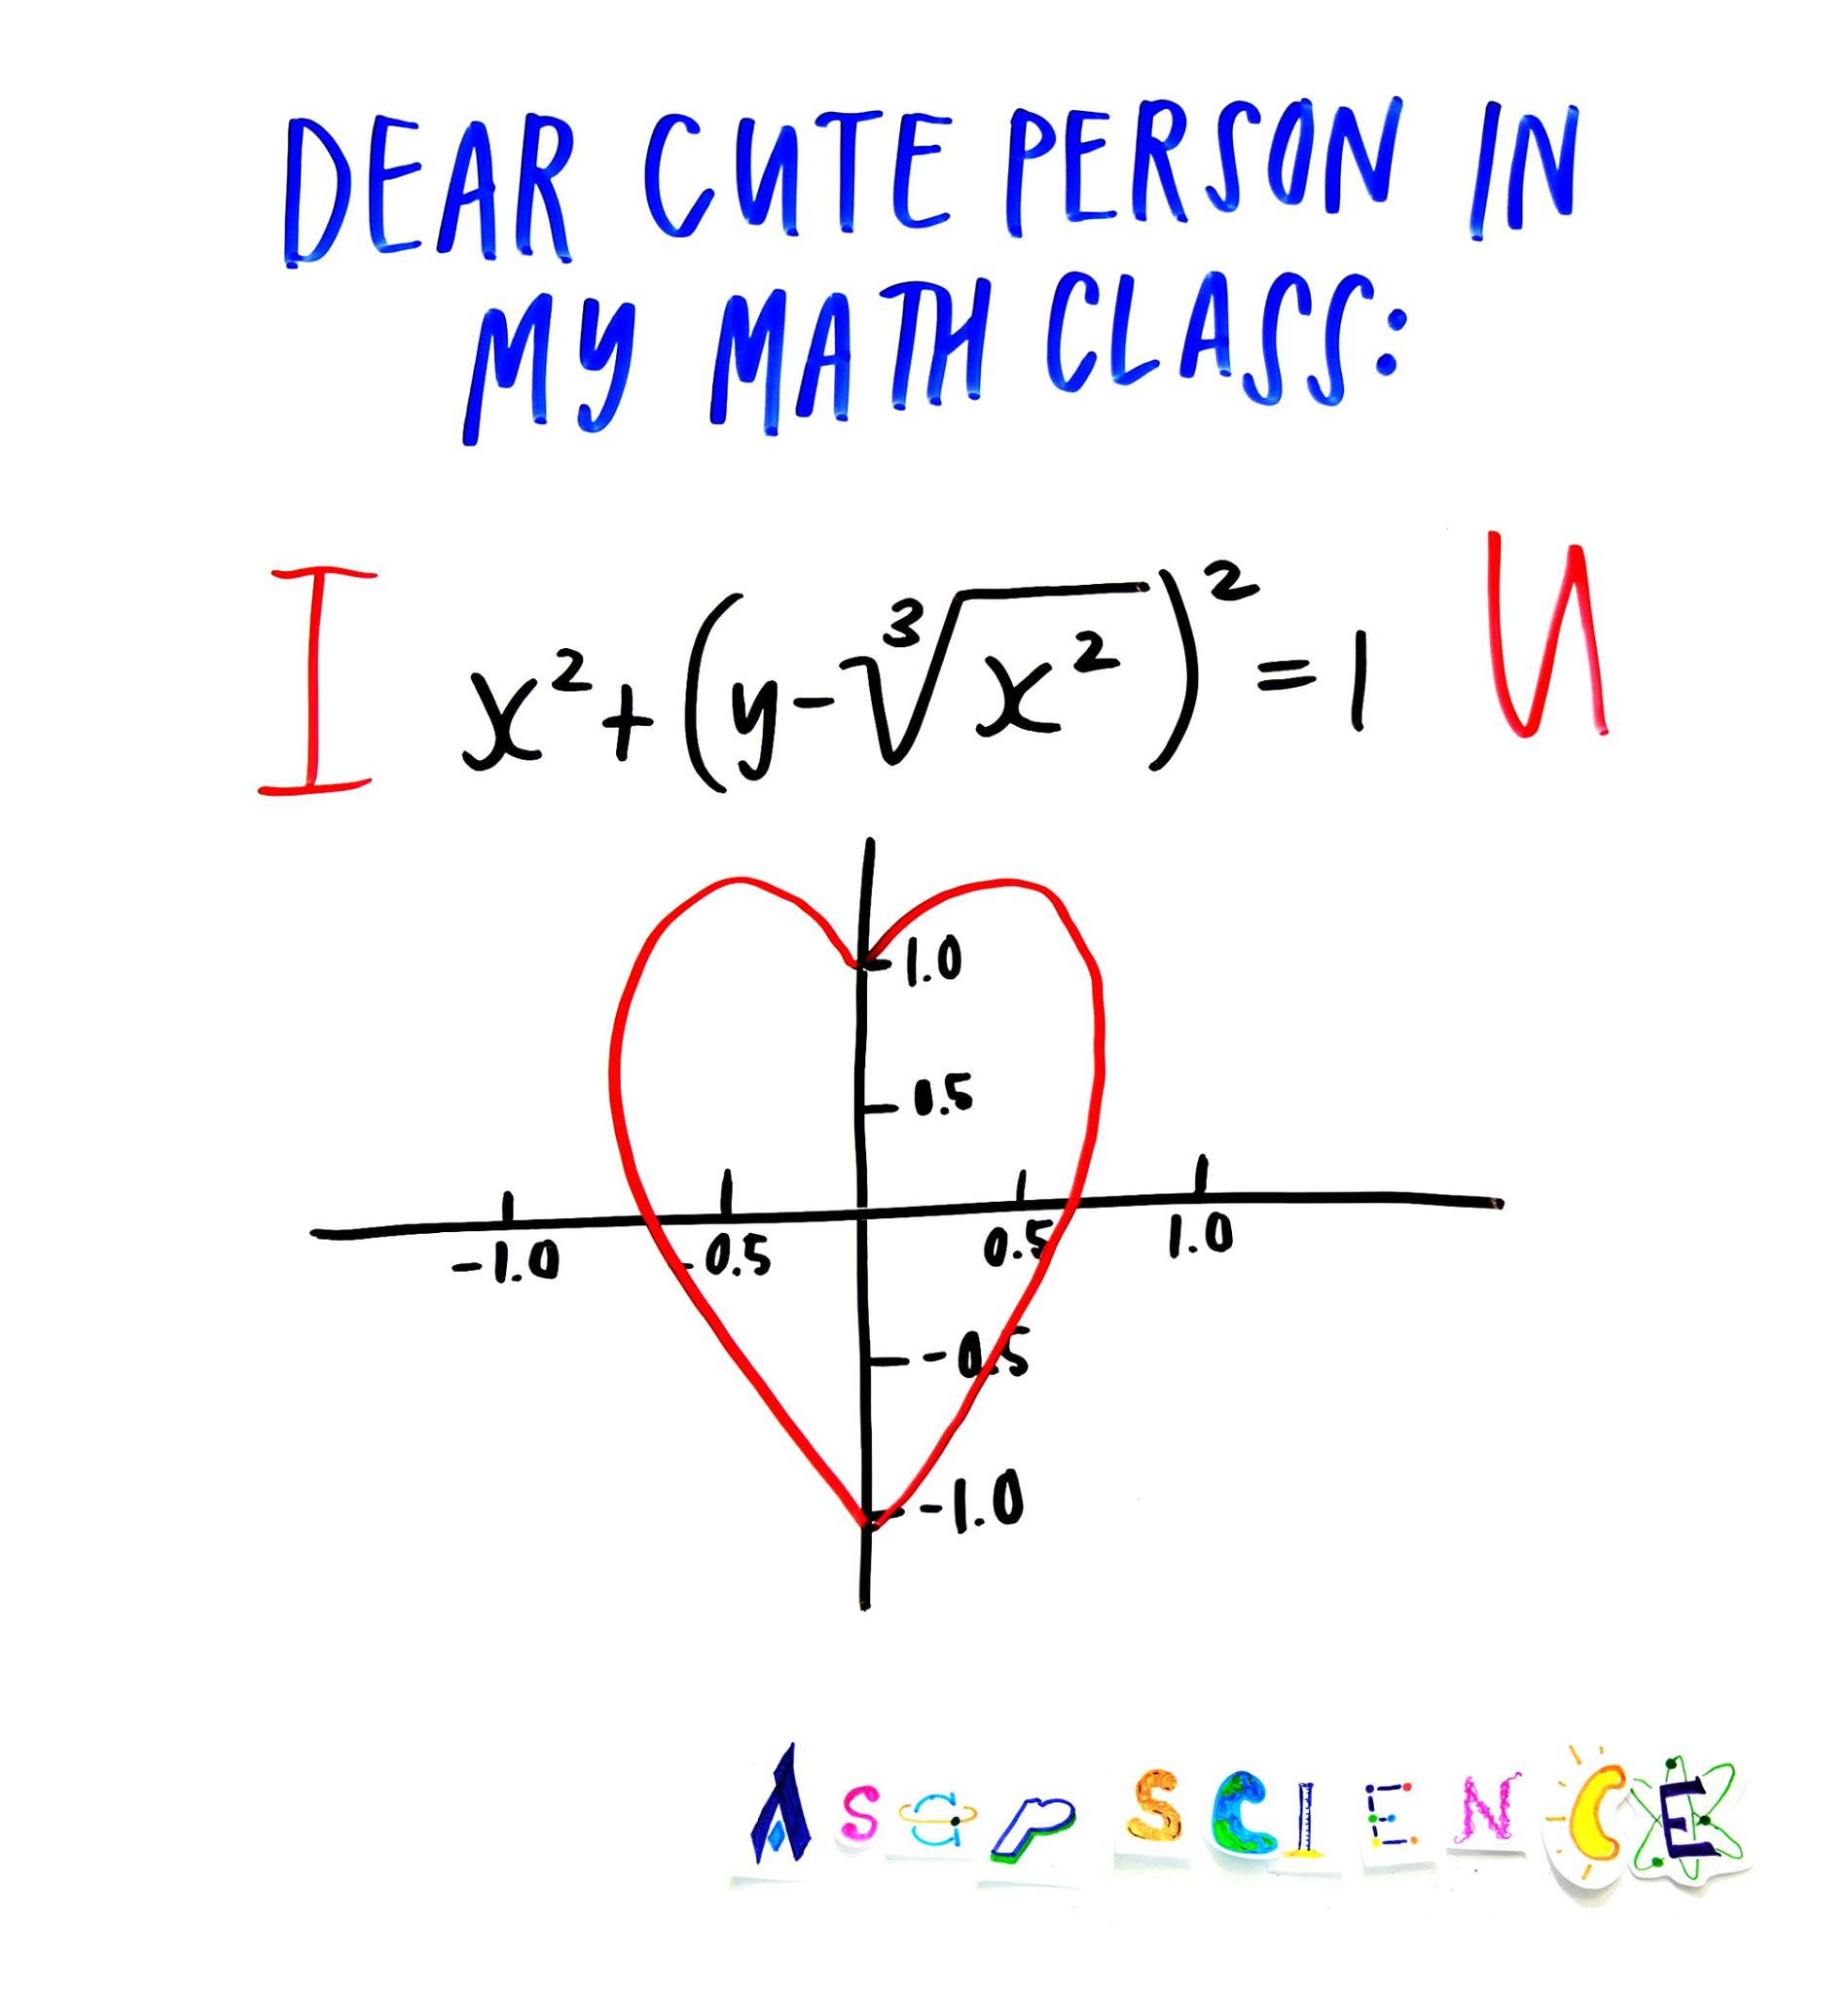 DEAR CUTE PERSON IN
MY MATH CLASS:
I x²+(y-∛x²)²=1 U
1.0
0.5
-1.0 -0.5 0.5 1.0
-0.5
-1.0
ASAP SCIENCE